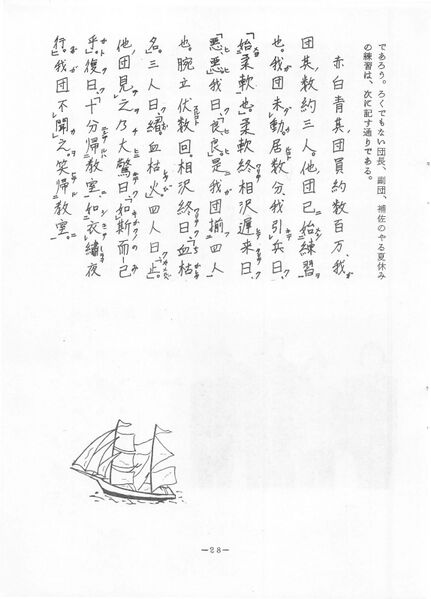 であろう。ろくでもない団長、副団、補佐のやる夏休み
の練習は、次に記す通りである。
赤白青其団員約数百万、我
団其数約三人。他団已始練習
也。我団未動居数分、我引兵曰、
「始柔軟也。」柔軟終相沢遅来曰、
「悪、悪。」我曰「良、良。」是我団揃四人
也。腕立伏数回。相沢終曰「血枯」
名。三人曰、「繪血枯火。」四人曰、「止。」
他団見之乃大驚曰、「如斯而已
乎。」復曰、「十分帰教室、如衣繡夜
行。」我団不聞之。笑帰教室。
—28—